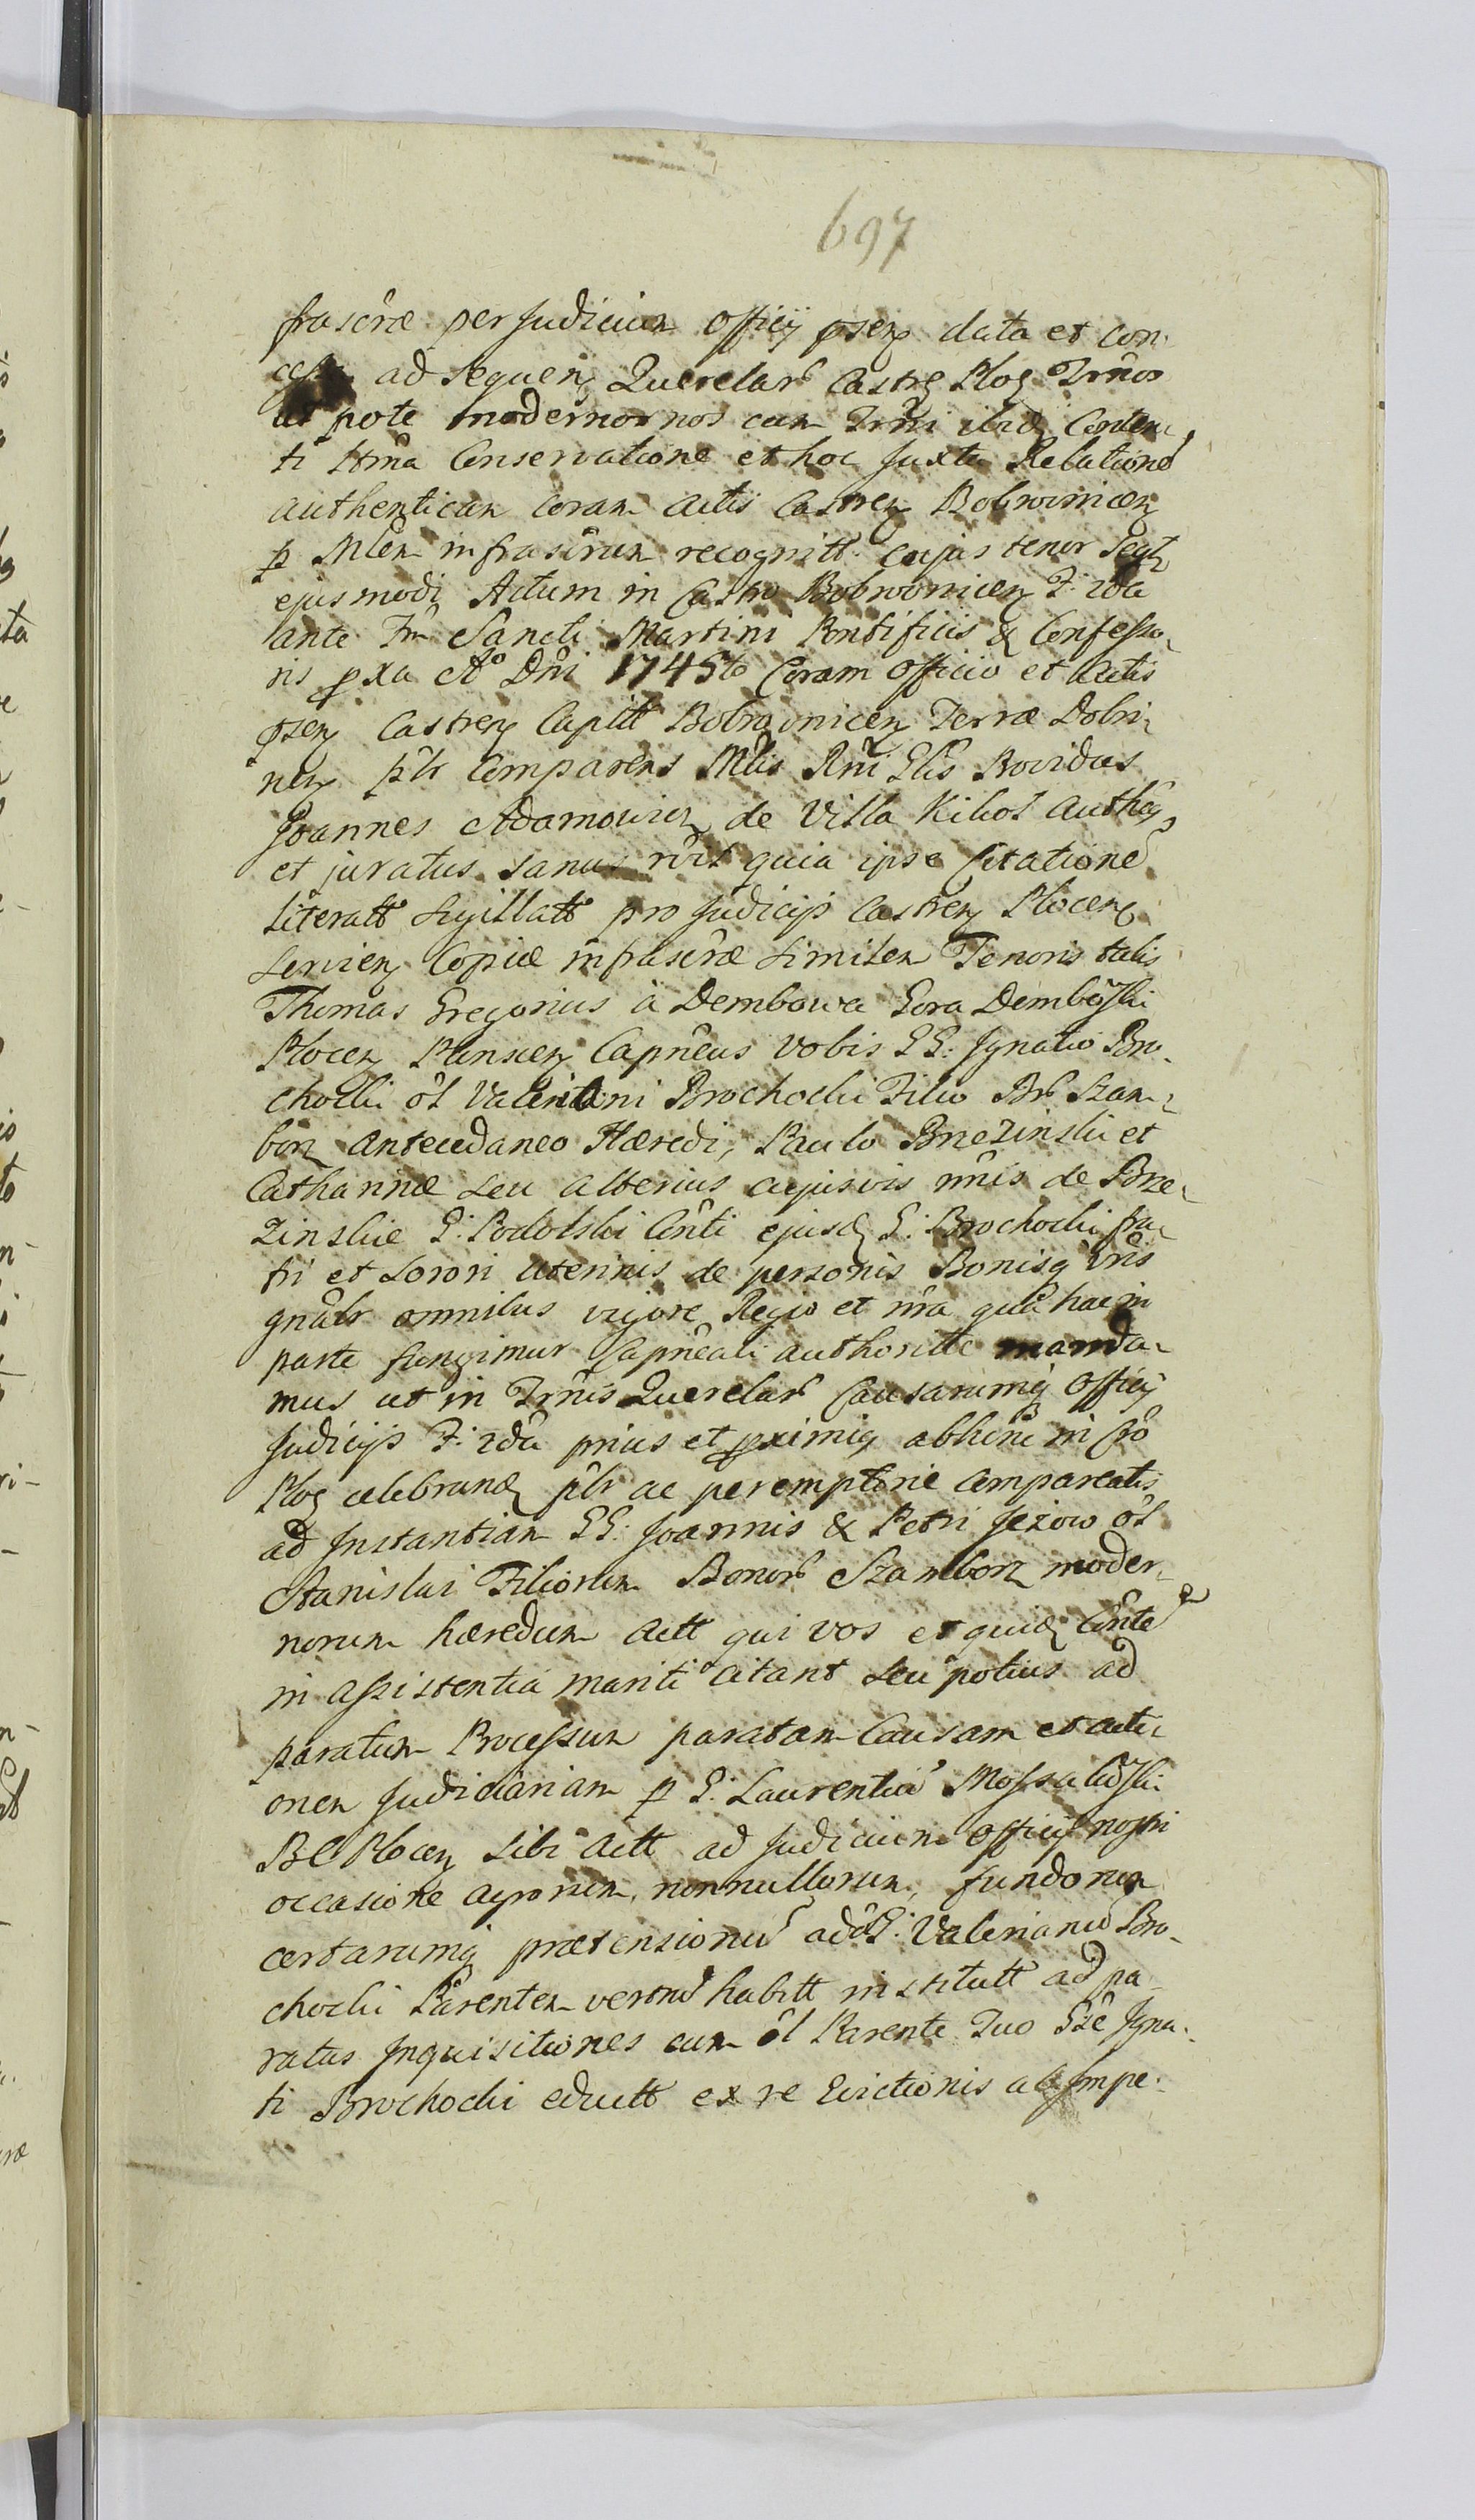 697
frascrae per Judicium Officij pseng data et con-
ad sequeng Querelar Castrg Plog Trnos
ut pote modernornos cum Trni ibid Conten-
ti Ttma Conservatione et hoc Juxta Relatione
authenticam coram actis Castreng Bobrownicen
p Mlem infrascrum recognitt cujus tenor seqt
ejusmodi Actum in Castro Bobrownicen F: 2da
ante Fm Sancti Martini Pontificis & Confesso-
ris pxa Ao Dni 1745to Coram Officio et Actis
pseng Castreng Capitt Bobrownicen Terrae Dobri-
nen pltr Comparens Mlis Rni Glis Providus
Joannes Adamowicz de Villa Kikol authen
et juratus sanus rvit quia ipse Citatione
literatt Sigillatt pro Judicijs Castreng Plocen
Servien Copiae infrascrae similem Tenoris talis
Thomas Gregorius à Dembowa Gora Dembowski
Plocen Capneus vobis GG: Ignatio Bro-
chocki ol Valeriani Brochocki Filio Br Szam-
borz antecedaneo Haeredi, Paulo Brzezinski et
Catharinae seu alterius cujusvis nnis de Brze-
zinskie G: Podolski Conti ejusd G: Brochocki fra-
tri et Sorori uterinis de personis Bonisq vris
gnalr omnibus vigore Regio et nra qua hac in
parte fungimur Capneali authoritte manda-
mus ut in Trnis Querelar Causarumq Officij
Judicijs F: 2da prius et pximiq abhinc in Cro
Plog celebrand pltr ac peremptorie compareatis
ad Instantiam GG: Joannis & Petri Jezow ol
Stanislai Filiorum Bonor Szamborz moder-
norum haeredum actt qui vos et quid Conte
in assistentia mariti citant seu potius ad
paratum Processum paratam Causam et acti-
onem Judiciariam p G: Laurentiu Mossakowski
BC Plocen sibi actt ad Judicium Officij nostri
occasione agrorum nonnullorum, fundorum
certarumq praetensionu ad G: Valerianu Bro-
chocki Parentem verum habitt institutt ad pa-
ratas Inquisitiones cum ol Parente Tuo Gse Igna-
ti Brochocki eductt ex re Evictionis ab Impe-